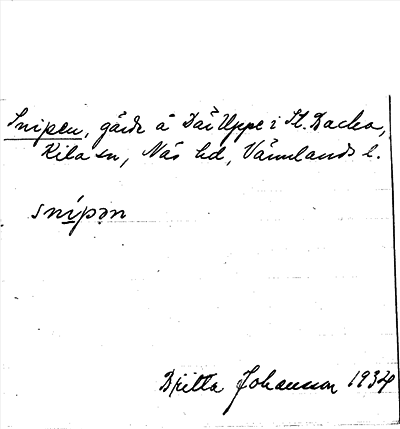 Snipen, gårde å Där Uppe i St. Backa,
Kila sn, Näs hd, Värmlands l.
snípən
Britta Johansson 1934